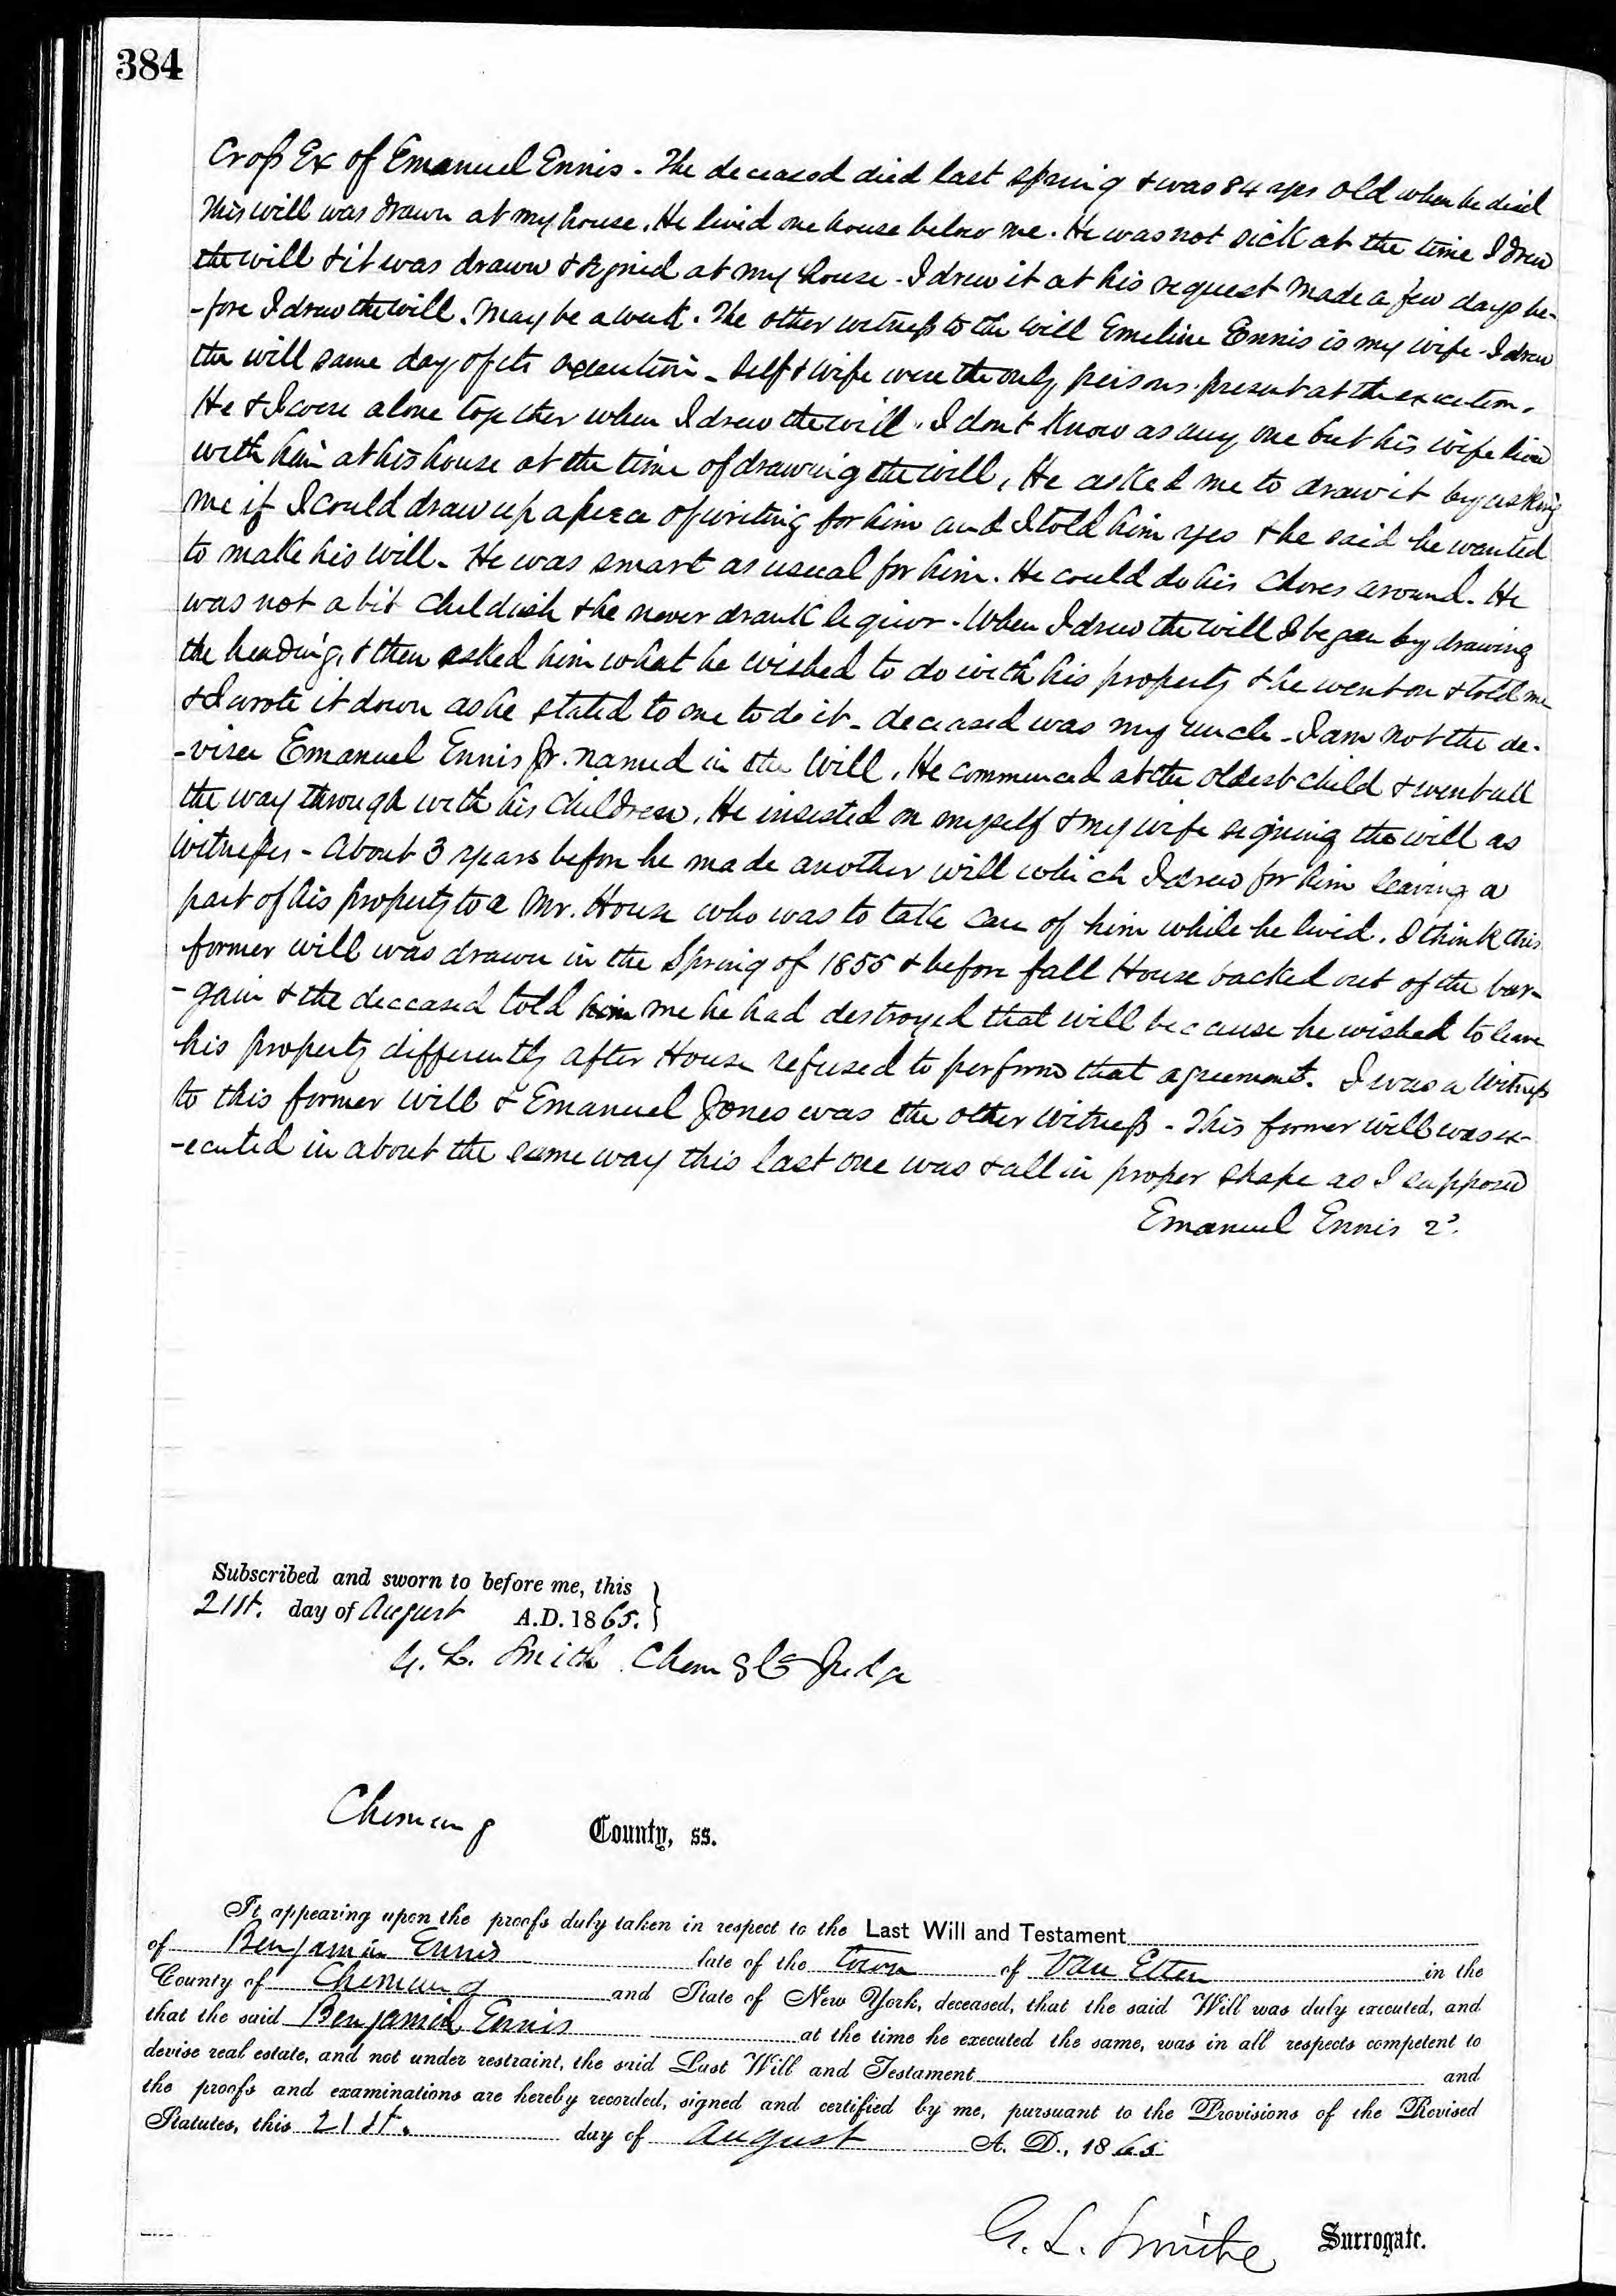 384
Cross Ex of Emanuel Ennis - The deceased died last spring & was 84 yrs old when he died
This will was drawn at my house. He lived one house below me. He was not sick at the time I drew
the will & it was drawn & signed at my house - I drew it at his request made a few days be-
-fore I drew the will. May be a week. The other witness to the will Emeline Ennis is my wife - I drew
the will same day of its execution - Self & wife were the only persons present at the execution.
He & I were alone together when I drew the will. I dont know as any one but his wife lived
with him at his house at the time of drawing the will, He asked me to draw it by asking
me if I could draw up a piece of writing for him and I told him yes & he said he wanted
to make his will. He was smart as usual for him. He could do his chores around. He
was not a bit childish & he never drank liquor - When I drew the will I began by drawing
the heading, & then asked him what he wished to do with his property & he went on & told me
& I wrote it down as he stated to me to do it - deceased was my uncle - I am not the de-
-visee Emanuel Ennis Jr. named in the will. He commenced at the oldest child & went all
the way through with his children. He insisted on myself & my wife signing the will as
witnesses - About 3 years before he made another will which I drew for him leaving a
part of his property to a Mr. House who was to take care of him while he lived. I think this
former will was drawn in the Spring of 1855 & before fall House backed out of the bar-
-gain & the deceased told him me he had destroyed that will because he wished to leave
his property differently after House refused to perform that agreement. I was a witness
to this former will & Emanuel Jones was the other witness - This former will was ex-
-ecuted in about the same way this last one was & all in proper shape as I supposed
Emanuel Ennis 2d.
Subscribed and sworn to before me, this
21st. day of August A.D. 1865.
G. L. Smith Chemg Co Judge
Chemung County, ss.
It appearing upon the proofs duly taken in respect to the Last Will and Testament
of Benjamin Ennis late of the town of Van Etten in the
County of Chemung and State of New York, deceased, that the said Will was duly executed, and
that the said Benjamin Ennis at the time he executed the same, was in all respects competent to
devise real estate, and not under restraint, the said Last Will and Testament and
the proofs and examinations are hereby recorded, signed and certified by me, pursuant to the Provisions of the Revised
Statutes, this 21st. day of August A. D., 1865
G. L. Smith Surrogate.